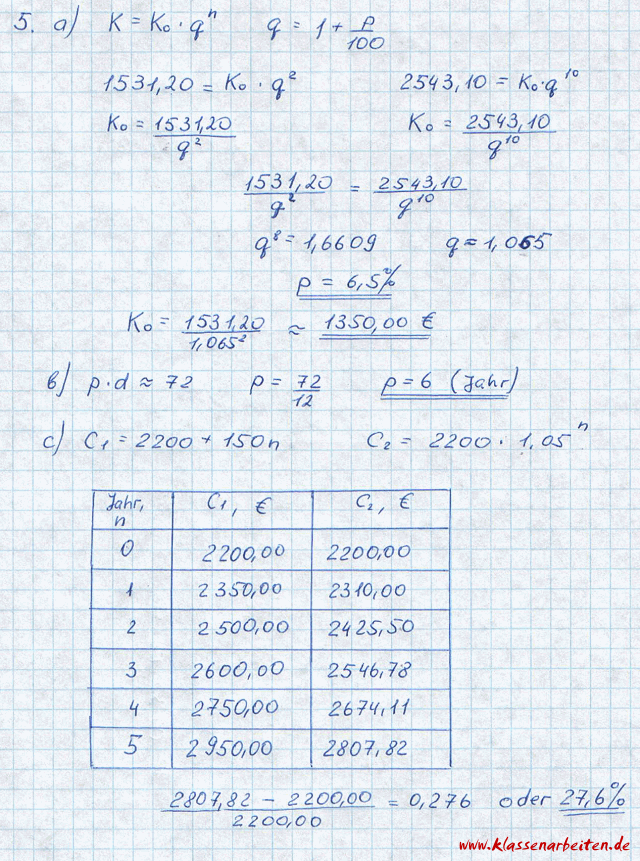 5. a) K = K₀ · qⁿ q = 1 + p/100
1531,20 = K₀ · q² 2543,10 = K₀·q¹⁰
K₀ = 1531,20/q² K₀ = 2543,10/q¹⁰
1531,20/q² = 2543,10/q¹⁰
q⁸ = 1,6609 q ≈ 1,065
p = 6,5%
K₀ = 1531,20/1,065² ≈ 1350,00 €
b) p·d ≈ 72 p = 72/12 p = 6 (Jahr)
c) C₁ = 2200 + 150n C₂ = 2200 · 1,05ⁿ
Jahr, n C₁, € C₂, €
0 2200,00 2200,00
1 2350,00 2310,00
2 2500,00 2425,50
3 2600,00 2546,78
4 2750,00 2674,11
5 2950,00 2807,82
(2807,82 – 2200,00)/2200,00 = 0,276 oder 27,6%
www.klassenarbeiten.de